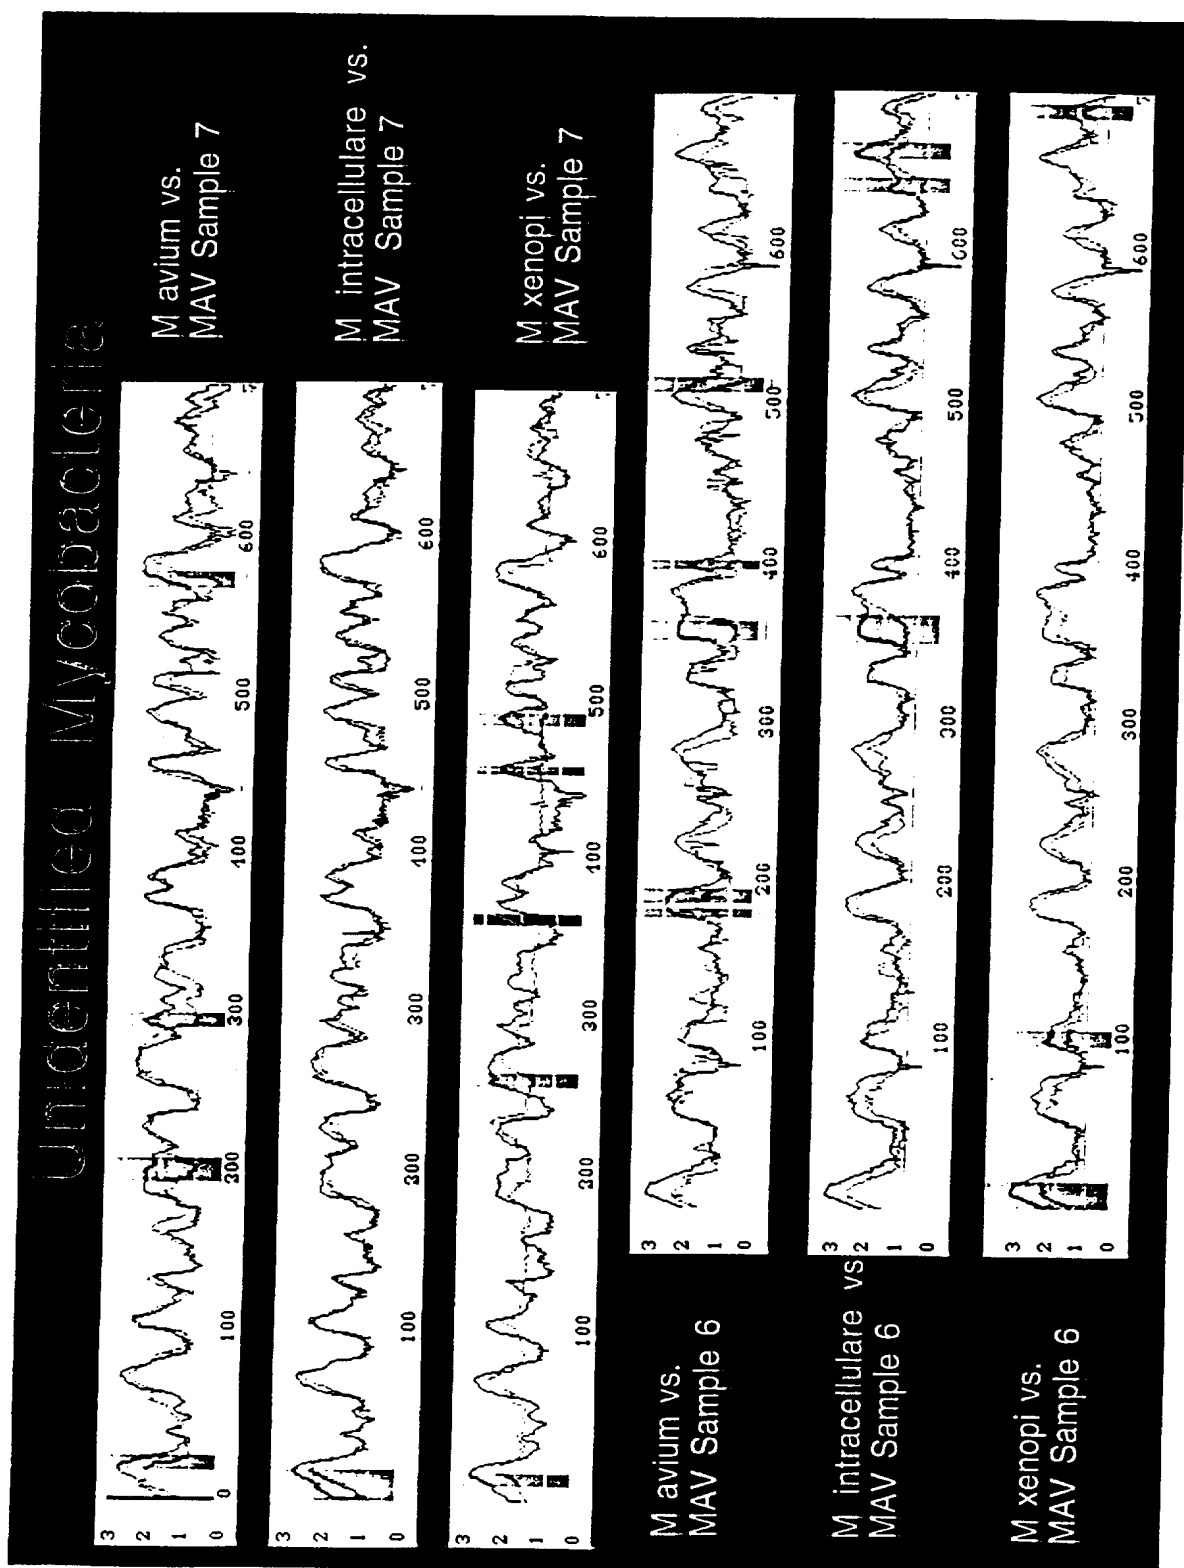 Unidentified Mycobacteria
3
2
1
0
0 100 200 300 400 500 600
M avium vs.
MAV Sample 7
3
2
1
0
100 200 300 400 500 600
M intracellulare vs.
MAV Sample 7
3
2
1
0
100 200 300 400 500 600
M xenopi vs.
MAV Sample 7
M avium vs.
MAV Sample 6
3
2
1
0
100 200 300 400 500 600
M intracellulare vs
MAV Sample 6
3
2
1
0
100 200 300 400 500 600
M xenopi vs.
MAV Sample 6
3
2
1
0
100 200 300 400 500 600